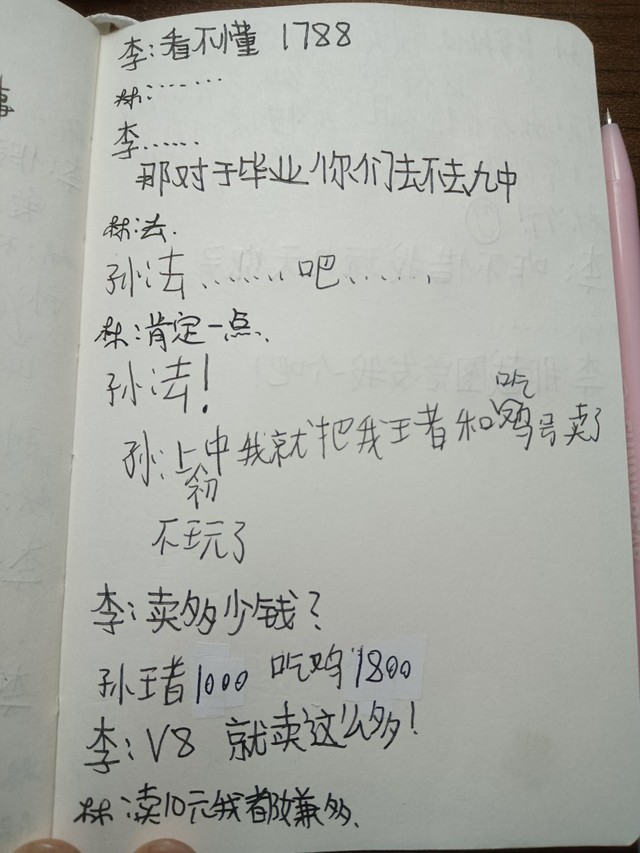 李:看不懂 1788
林:……
李……
那对于毕业你们去不去九中
林:去.
孙:去……吧……
林:肯定一点.
孙去!
吃
孙:上中我就把我王者和鸡号卖了
初
不玩了
李:卖多少钱?
孙王者1000 吃鸡1800
李:V8 就卖这么多!
林:卖10元我都嫌多.
事